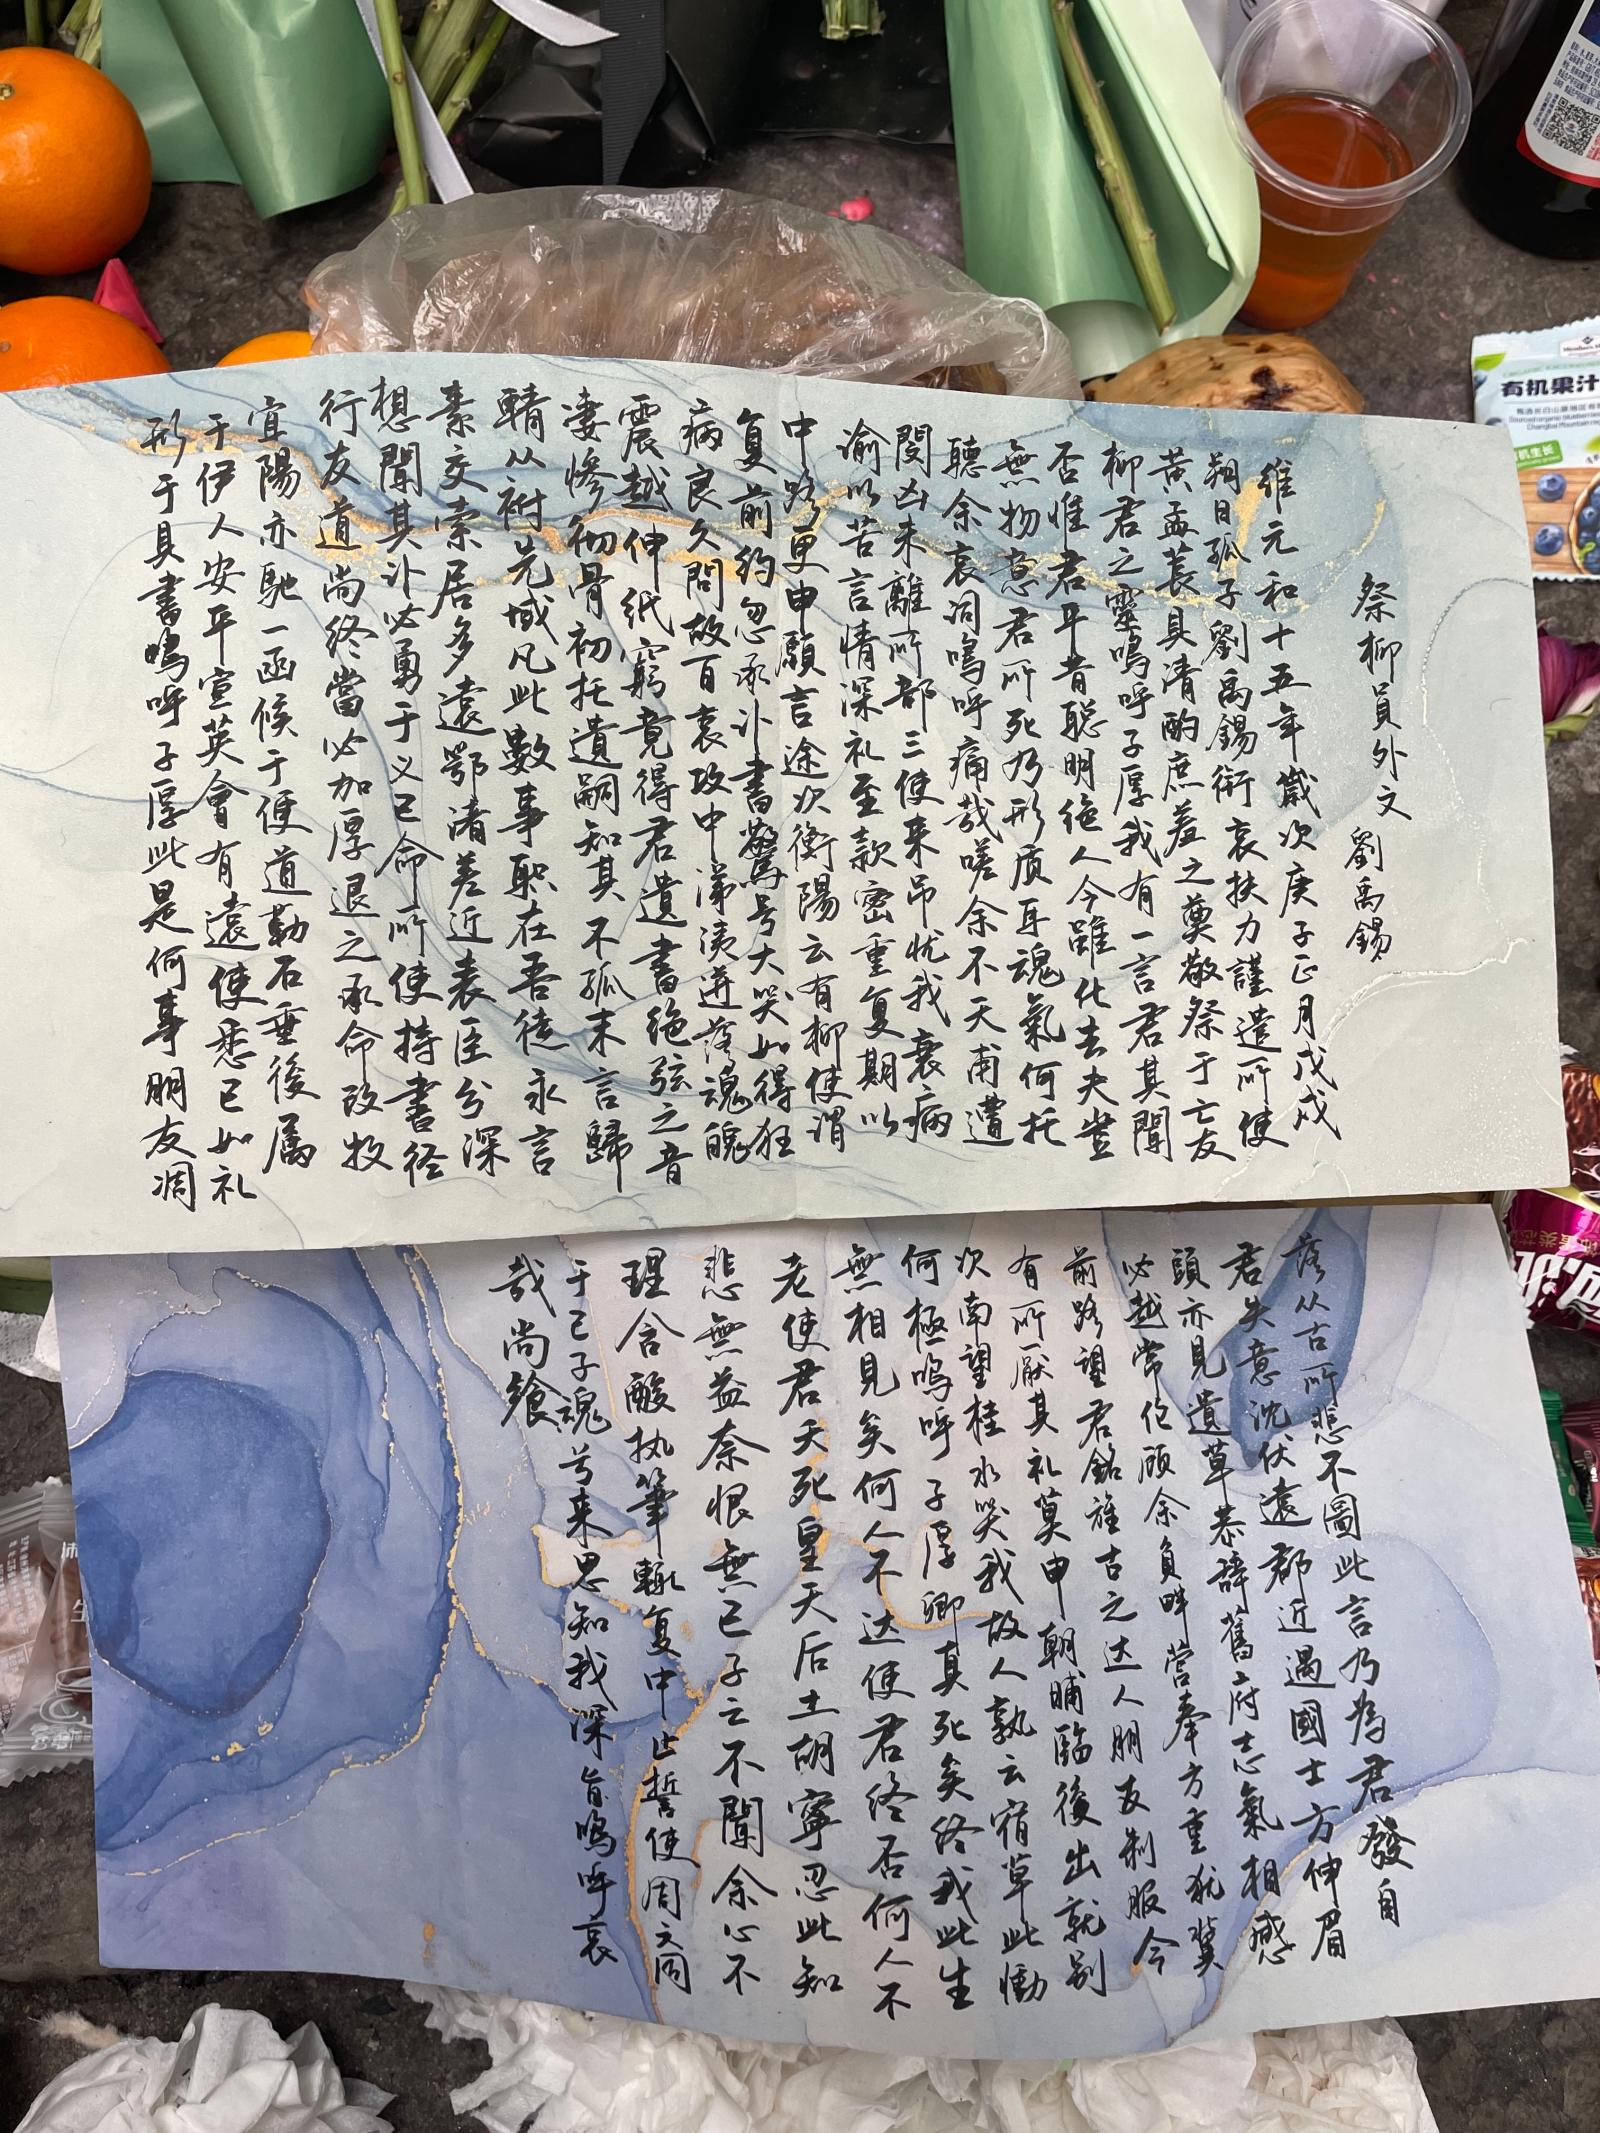 祭柳員外文 劉禹錫
維元和十五年歲次庚子正月戊戌
朔日孤子劉禹錫銜哀扶力謹遣所使
黃孟萇具清酌庶羞之奠敬祭于亡友
柳君之靈嗚呼子厚我有一言君其聞
否惟君平昔聪明绝人今雖化去夫豈
無物意君所死乃形质耳魂氣何托
聽余哀词嗚呼痛哉嗟余不天甫遭
閔凶未離所部三使来吊忧我衰病
谕以苦言情深礼至款密重复期以
中路更申願言途次衡陽云有柳使谓
复前约忽承讣書驚号大哭如得狂
病良久問故百哀攻中涕洟迸落魂魄
震越伸纸窮竟得君遺書绝弦之音
凄惨彻骨初托遺嗣知其不孤末言歸
輤从祔先域凡此數事职在吾徒永言
素交索居多遠鄂渚差近表臣分深
想聞其讣必勇于义已命所使持書径
行友道尚终當必加厚退之承命改牧
宜陽亦馳一函候于便道勒石垂後属
于伊人安平宣英會有遠使悉已如礼
形于具書嗚呼子厚此是何事朋友凋
落从古所悲不圖此言乃為君發自
君失意沈伏遠郡近遇國士方伸眉
頭亦見遺草恭辞舊府志氣相感
必越常伦顾余負衅营奉方重犹冀
前路望君銘旌古之达人朋友制服今
有所厭其礼莫申朝晡臨後出就别
次南望桂水哭我故人孰云宿草此慟
何極嗚呼子厚卿真死矣终我此生
無相見矣何人不达使君终否何人不
老使君夭死皇天后土胡寧忍此知
悲無益奈恨無已子之不聞余心不
理含酸执筆輒复中止誓使周六同
于己子魂兮来思知我深旨嗚呼哀
哉尚飨
有机果汁